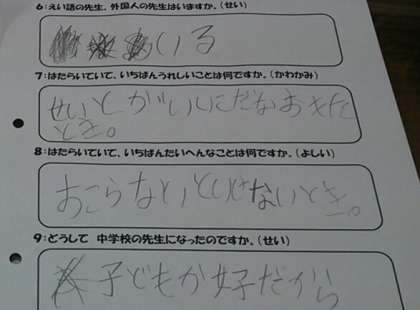 6:えい語の先生、外国人の先生はいますか。(せい)
いる
7:はたらいていて、いちばんうれしいことは何ですか。(かわかみ)
せいとがいいにだなおきたた
とき。
8:はたらいていて、いちばんたいへんなことは何ですか。(よしい)
おこらないといけないとき。
9:どうして 中学校の先生になったのですか。(せい)
子どもが好だから